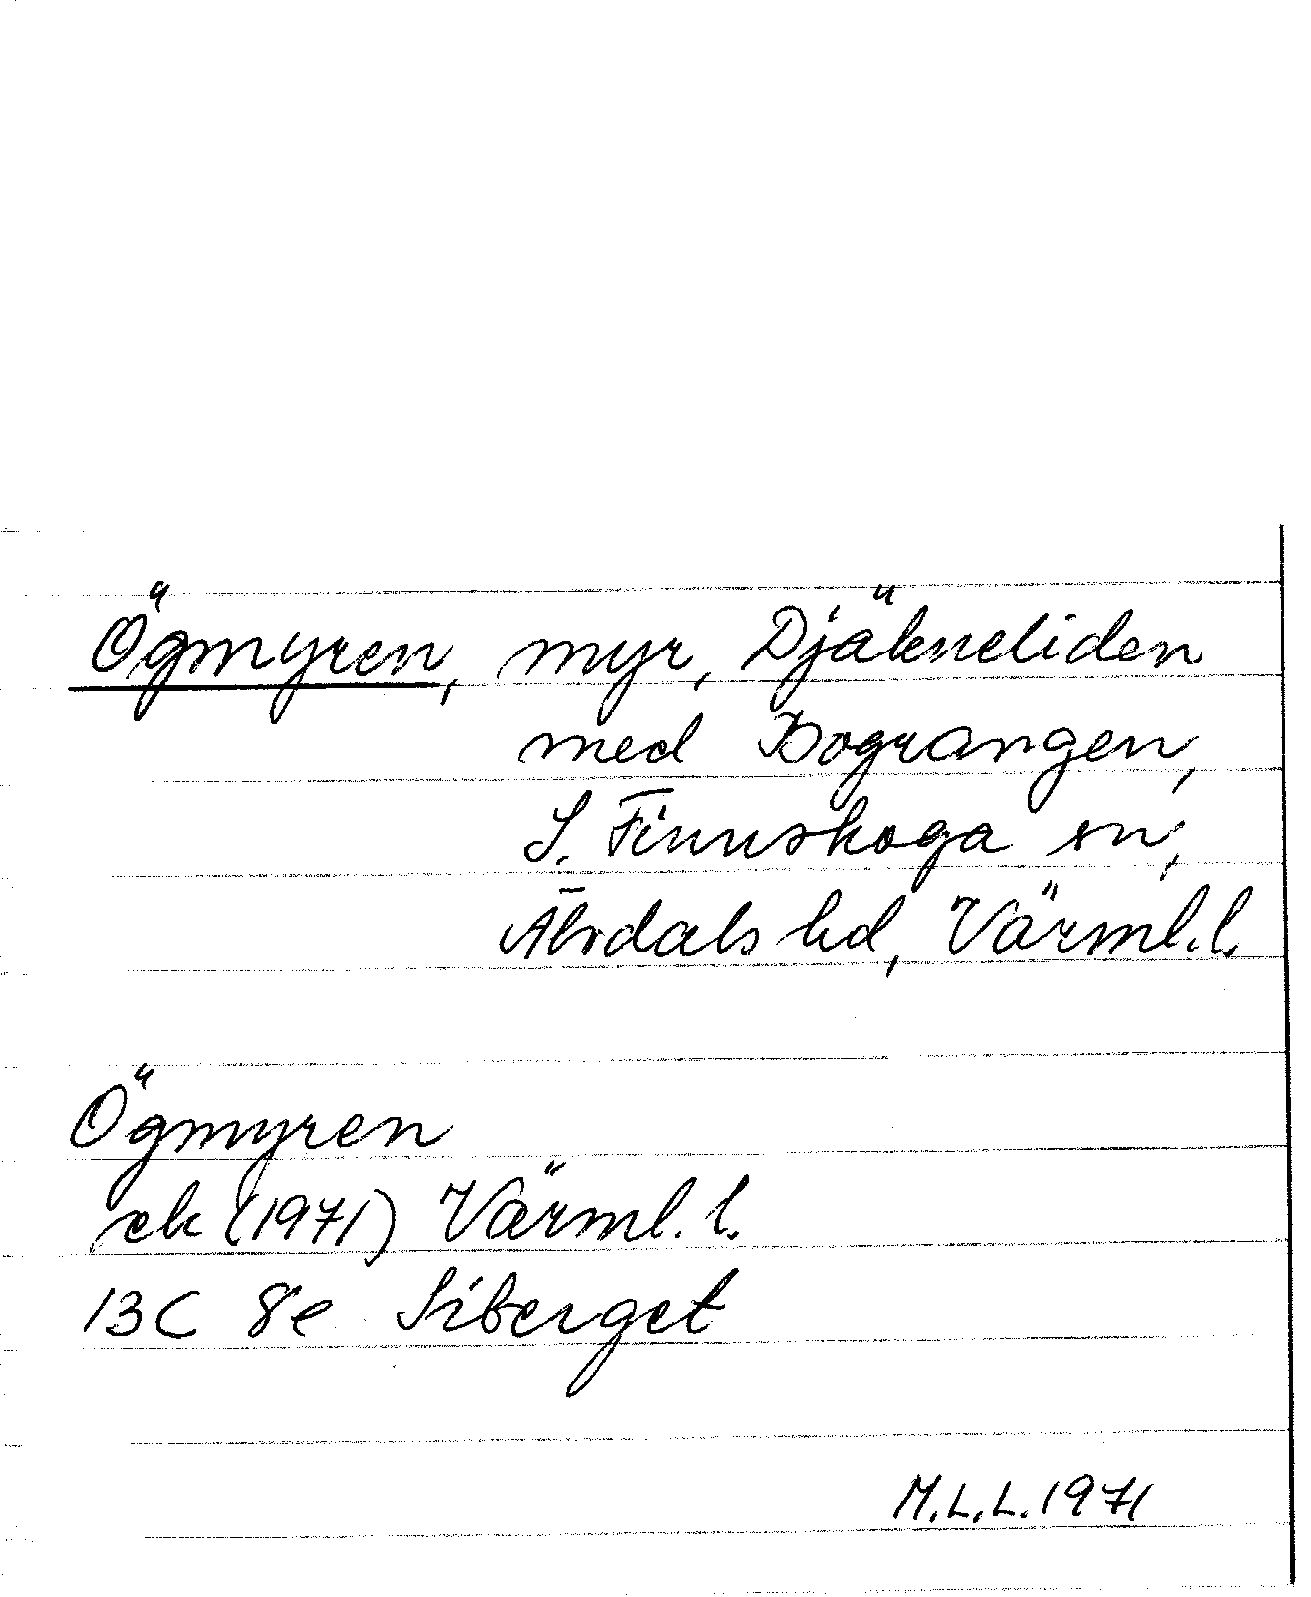 Ögmyren, myr, Djäkneliden
med Bograngen,
S. Finnskoga sn,
Älvdals hd, Värml.l.
Ögmyren
ek (1971) Värml.l.
13C 8e Siberget
M.L.L.1971